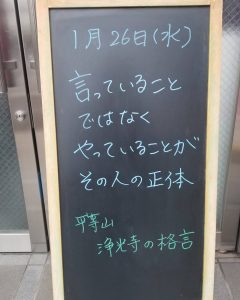 1月26日(水)
言っていること
ではなく
やっていることが
その人の正体
平等山
浄光寺の格言